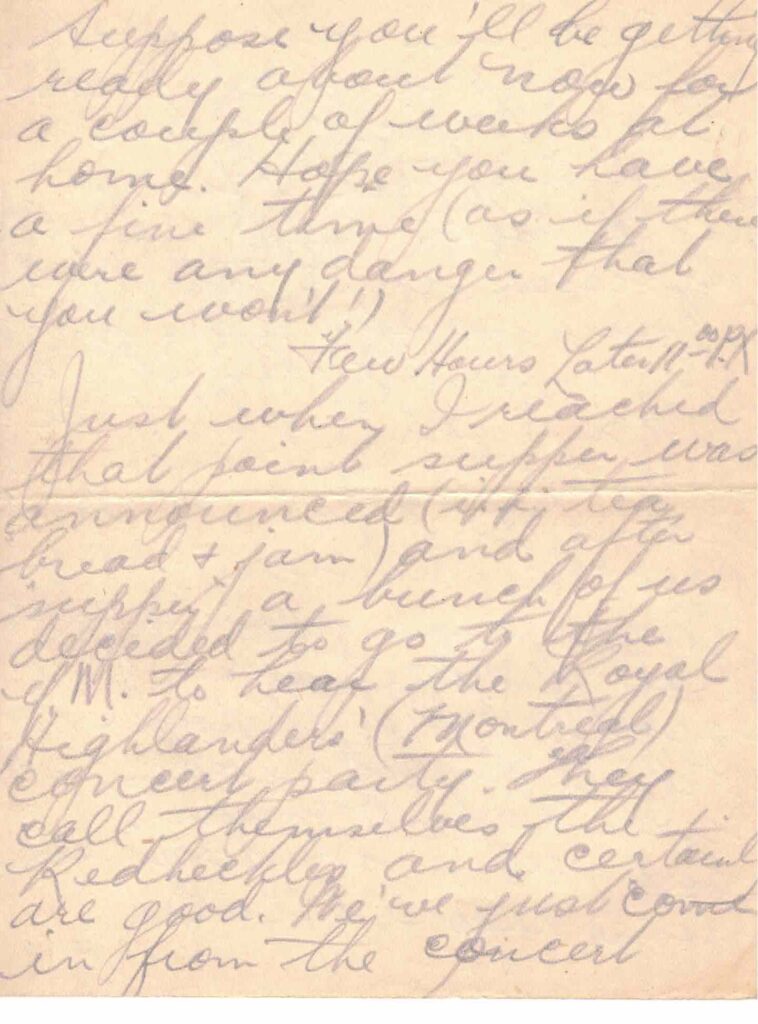 Suppose you'll be getting
ready about now for
a couple of weeks at
home. Hope you have
a fine time (as if there
were any danger that
you won't!)
Few Hours Later 11-00 P.M
Just when I reached
that point supper was
announced (with tea,
bread & jam) and after
supper a bunch of us
decided to go to the
Y.M. to hear the Royal
Highlanders' (Montreal)
concert party. They
call themselves the
Redheckles and certainl
are good. We've just come
in from the concert